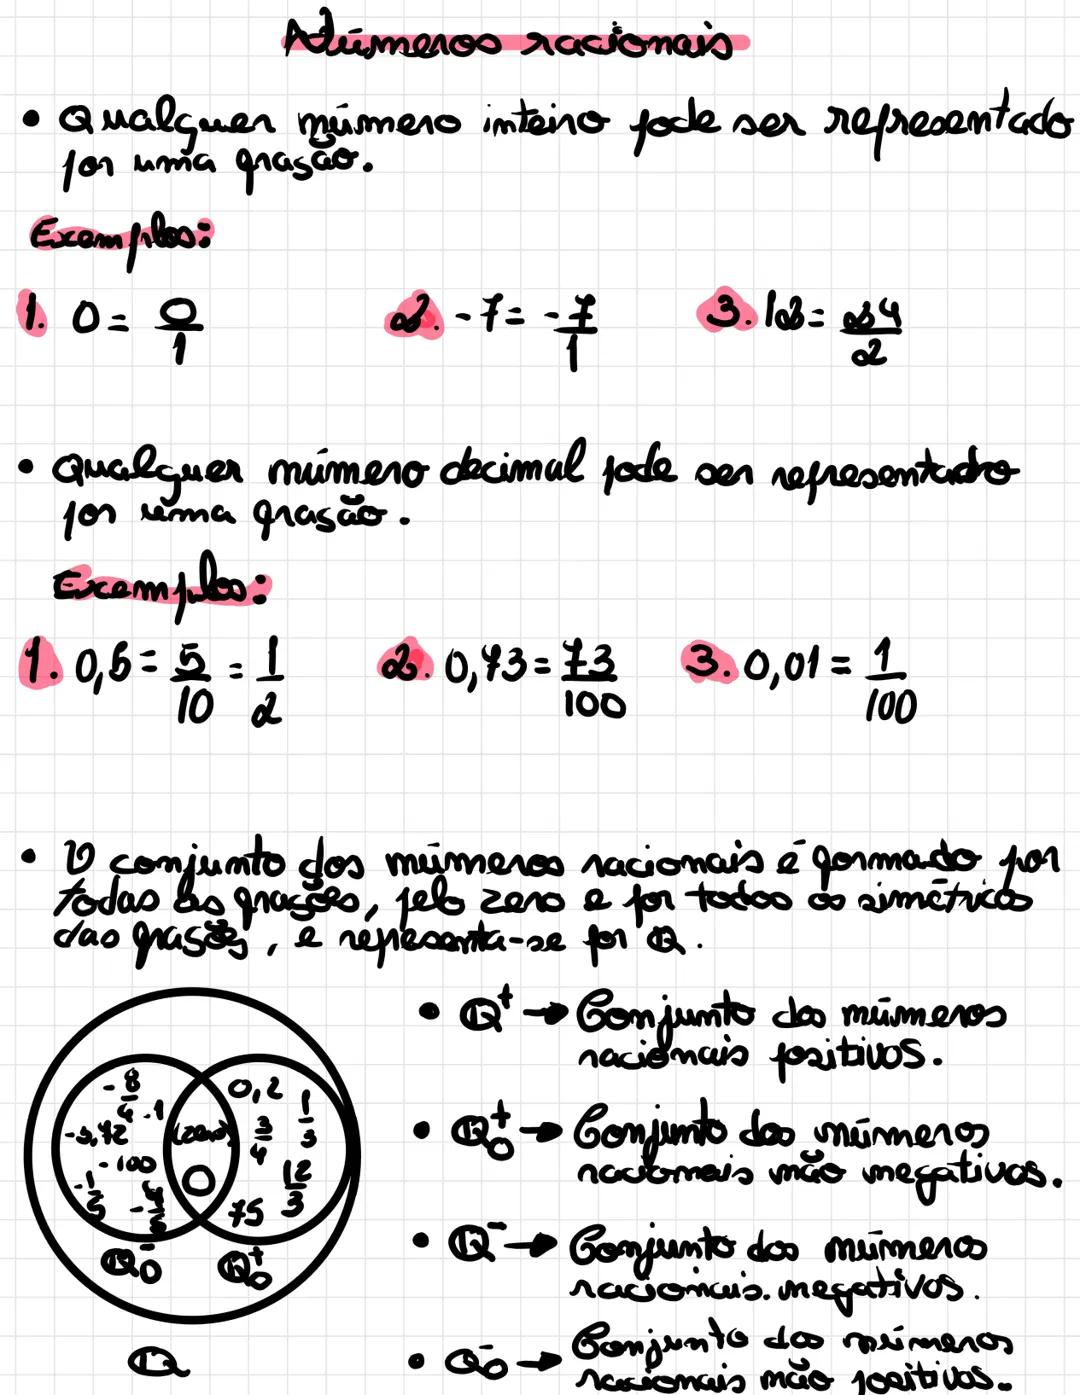 Números racionais
• Qualquer número inteiro pode ser representado
por uma fração.
Exemplos:
1. 0 = 0/1 2. -7 = -7/1 3. 12 = 24/2
• Qualquer número decimal pode ser representado
por uma fração.
Exemplos:
1. 0,5 = 5/10 = 1/2 2. 0,73 = 73/100 3. 0,01 = 1/100
• O conjunto dos números racionais é formado por
todas as frações, pelo zero e por todos os simétricos
das frações, e representa-se por Q.
• Q⁺ → Conjunto dos números
racionais positivos.
• Q₀⁺ → Conjunto dos números
racionais não negativos.
• Q⁻ → Conjunto dos números
racionais negativos.
• Q₀⁻ → Conjunto dos números
racionais não positivos.
-8/4 -1
-100
-1/5
(zero)
0
0,2 1/3
3/4
12/3
75
Q₀⁻ Q₀⁺
Q